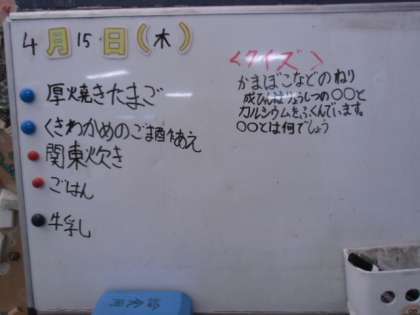 4月15日(木)
厚焼きたまご
くきわかめのごま酢あえ
関東炊き
ごはん
牛乳
<クイズ>
かまぼこなどのねり
成ひんはりょうしつの○○と
カルシウムをふくんでいます。
○○とは何でしょう
給食用